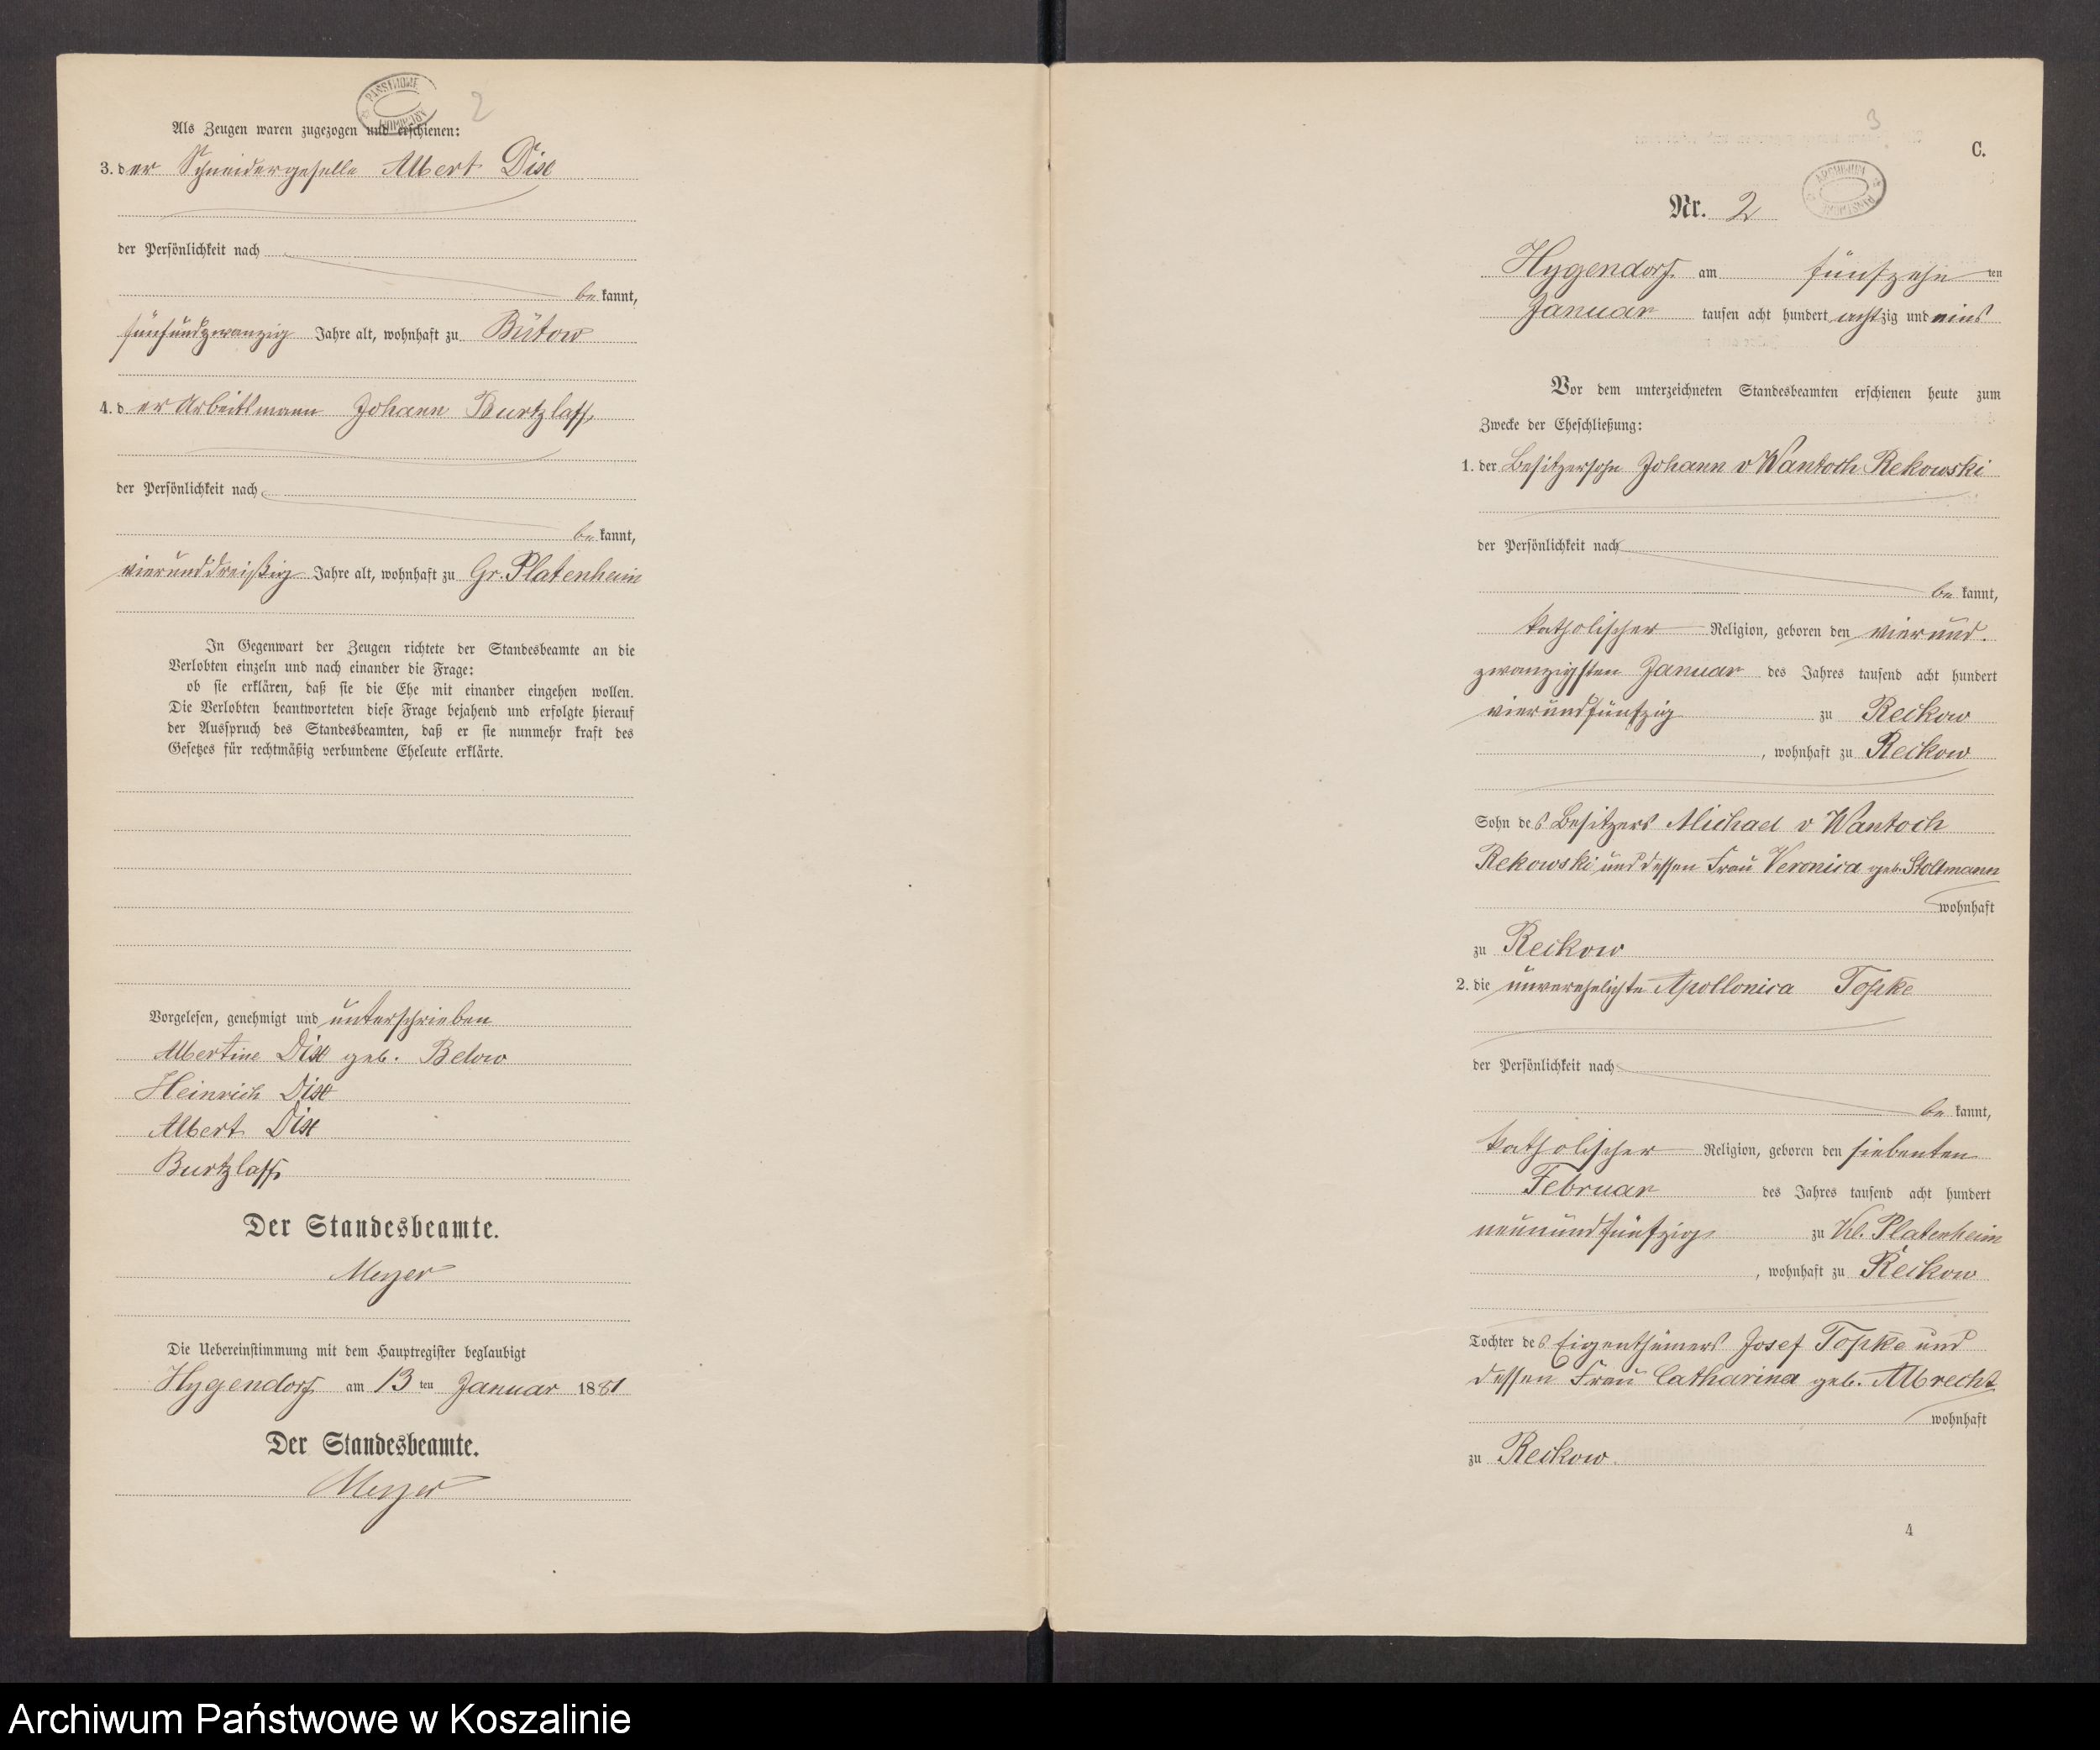 2
Als Zeugen waren zugezogen und erschienen:
3. der Schneidergeselle Albert Dise
der Persönlichkeit nach
bekannt,
fünfundzwanzig Jahre alt, wohnhaft zu Bütow
4. der Arbeitsmann Johann Burtzlaff,
der Persönlichkeit nach
bekannt,
vierunddreißig Jahre alt, wohnhaft zu Gr. Platenheim
In Gegenwart der Zeugen richtete der Standesbeamte an die
Verlobten einzeln und nach einander die Frage:
ob sie erklären, daß sie die Ehe mit einander eingehen wollen.
Die Verlobten beantworteten diese Frage bejahend und erfolgte hierauf
der Ausspruch des Standesbeamten, daß er sie nunmehr kraft des
Gesetzes für rechtmäßig verbundene Eheleute erklärte.
Vorgelesen, genehmigt und unterschrieben
Albertine geb. Below
Heinrich
Albert
Burtzlaff
Der Standesbeamte.
Meyer
Die Uebereinstimmung mit dem Hauptregister beglaubigt
Hygendorf am 13 ten Januar 1881
Der Standesbeamte.
Meyer
3
C.
ARCHIWUM PAŃSTWOWE
Nr. 2
Hygendorf am fünfzehn ten
Januar tausen acht hundert achtzig und eins
Vor dem unterzeichneten Standesbeamten erschienen heute zum
Zwecke der Eheschließung:
1. der Besitzersohn Johann v Wantoch Rekowski
der Persönlichkeit nach
bekannt,
katholischer Religion, geboren den vierund
zwanzigsten Januar des Jahres tausend acht hundert
vierundfünfzig zu Reckow
, wohnhaft zu Reckow
Sohn des Besitzers Michael v Wantoch
Rekowski und dessen Frau Veronica geb. Stoltmann
wohnhaft
zu Reckow
2. die unverehelichte Apollonica Topke
der Persönlichkeit nach
bekannt,
katholischer Religion, geboren den siebenten
Februar des Jahres tausend acht hundert
neunundfünfzig zu Kl. Platenheim
, wohnhaft zu Reckow
Tochter des Eigenthümers Josef Topke und
dessen Frau Catharina geb. Albrecht
wohnhaft
zu Reckow.
4
Archiwum Państwowe w Koszalinie